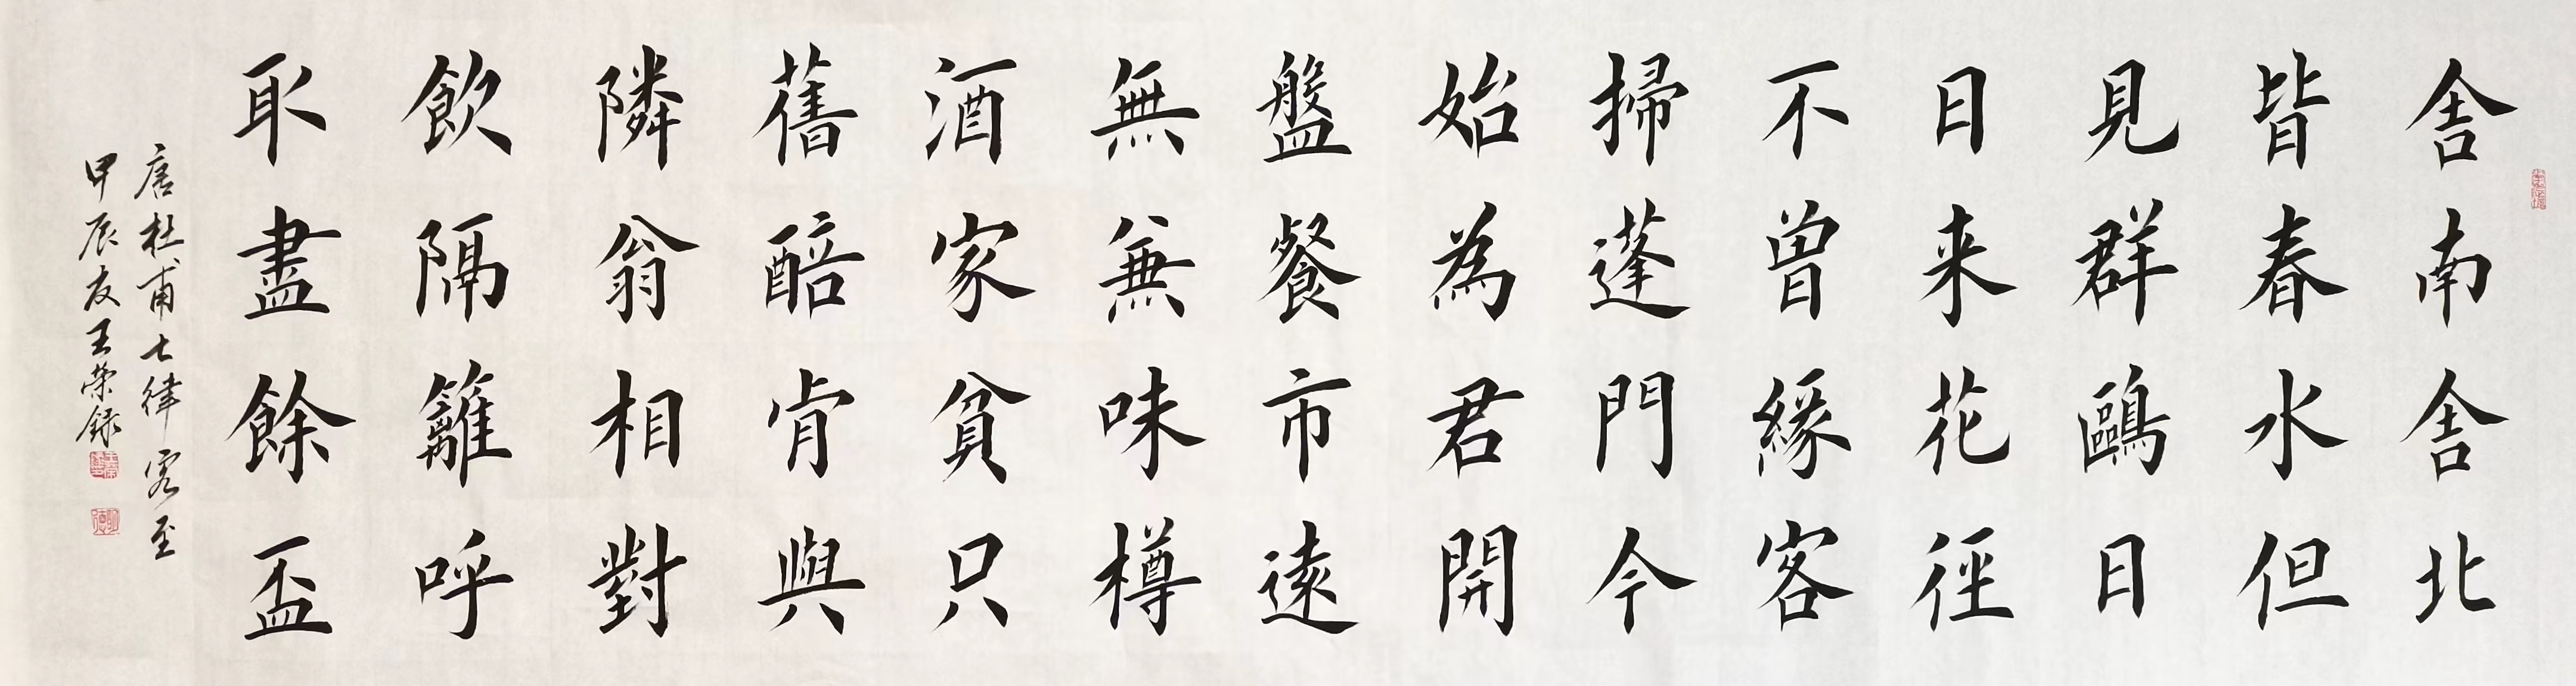 舎南舎北
皆春水但
見群鷗日
日来花徑
不曾緣客
掃蓬門今
始為君開
盤餐市遠
無兼味樽
酒家貧只
舊醅肯與
隣翁相對
飲隔籬呼
取盡餘盃
唐杜甫七律客至
甲辰友王榮録